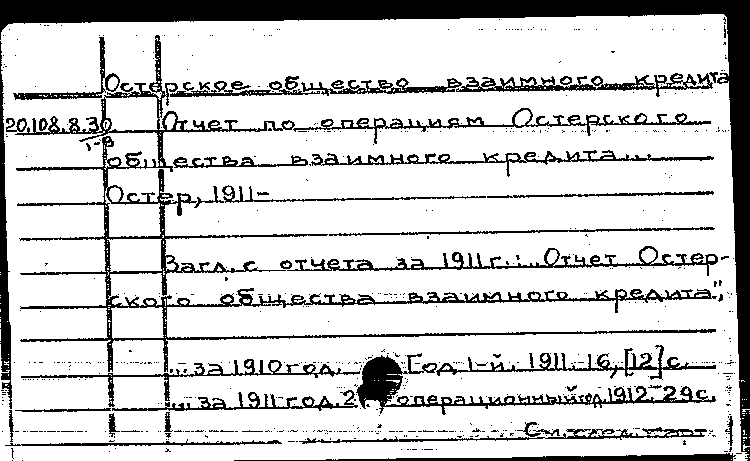 Остерское общество взаимного кредита
20.108.8.30 Отчет по операциям Остерского
1-8
общества взаимного кредита...
Остер, 1911-
Загл. с отчета за 1911 г.: "Отчет Остер-
ского общества взаимного кредита",
... за 1910 год. Год 1-й. 1911. 16, [12] с.
... за 1911 год. 2 операционный год. 1912. 29 с.
См. след. карт.